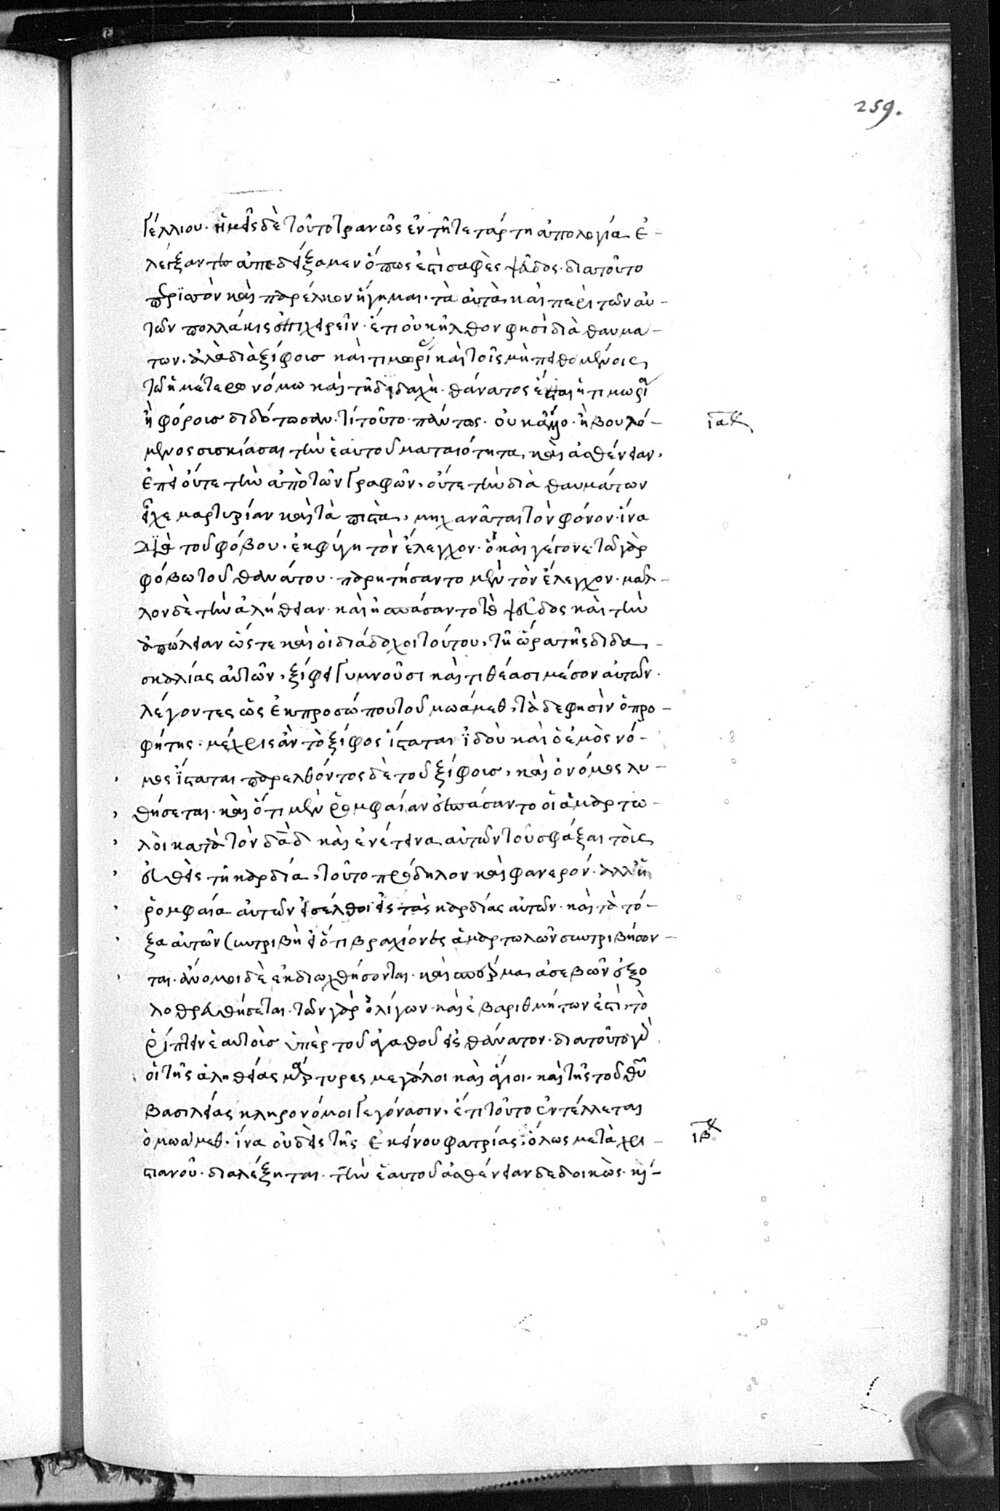 259.
γελλίου· ἡμεῖς δὲ τοῦτο τρανῶς ἐν τῇ τετάρτῃ ἀπολογίᾳ ἐ-
λέγξαντες ἀπεδείξαμεν ὅπως ἐστὶ σαφὲς ψεῦδος· διατοῦτο
περιττὸν καὶ παρέλκον ἥγημαι· τὰ αὐτὰ καὶ περὶ τῶν αὐ-
τῶν πολλάκις ἐπιχειρεῖν· ἔτι οὐκ ἦλθον φησὶ διὰ θαυμά-
των· ἀλλὰ διὰ ξίφους καὶ τιμωρί καὶ τοῖς μὴ πειθομένοις
τῷ ἡμετέρω νόμω καὶ τῇ διδαχῇ· θάνατος ἔσται ἡ τιμωρία
ἢ φόρους διδότωσαν· τί τοῦτο πάντως· οὐκ ἄλλο· ἢ βουλό-
μενος συσκιάσαι τὴν ἑαυτοῦ ματαιότητα, καὶ ἀσθένειαν,
ἐπεὶ οὔτε τὴν ἀπὸ τῶν γραφῶν, οὔτε τὴν διὰ θαυμάτων
εἶχε μαρτυρίαν καὶ τὰ πιστὰ, μηχανᾶται τὸν φόνον· ἵνα
διὰ τοῦ φόβου· ἐκφύγῃ τὸν ἔλεγχον· ὃ καὶ γέγονε τῷ γὰρ
φόβω τοῦ θανάτου· παρητήσαντο μὲν τὸν ἔλεγχον· μᾶλ-
λον δὲ τὴν ἀλήθειαν· καὶ ἠσπάσαντο τὸ ψεῦδος καὶ τὴν
ἀπώλειαν ὥστε καὶ οἱ διάδοχοι τούτου, τῇ ὥρα τῆς διδα-
σκαλίας αὐτῶν, ξίφει γυμνοῦσι καὶ τιθέασι μέσον αὐτῶν·
λέγοντες ὡς ἐκ προσώπου τοῦ μωάμεθ, τάδε φησὶν ὁ προ-
φήτης· μέχρις ἂν τὸ ξίφος ἵσταται ἰδοὺ καὶ ὁ ἐμὸς νό-
μος ἵσταται παρελθόντος δὲ τοῦ ξίφους, καὶ ὁ νόμος λυ-
θήσεται· καὶ ὅτι μὲν ῥομφαίαν ἐσπάσαντο οἱ ἁμαρτω-
λοὶ κατὰ τὸν δᾱδ καὶ ἐνέτειναν αὐτῶν τοῦ σφάξαι τοὺς
εὐθεῖς τῇ καρδία, τοῦτο πρόδηλον καὶ φανερόν· ἀλλ' ἡ
ῥομφαία αὐτῶν εἰσέλθοι εἰς τὰς καρδίας αὐτῶν· καὶ τὰ τό-
ξα αὐτῶν συντριβῇ ὅτι βραχίονες ἁμαρτωλῶν συντριβήσον-
ται· ἄνομοι δὲ ἐκδιωχθήσονται· καὶ σπέρμα ἀσεβῶν ἐξο
λοθρευθήσεται· τῶν γὰρ ὀλίγων καὶ εὐαριθμήτων ἐστὶ τὸ
ῥίπτειν ἑαυτοὺς ὑπὲρ τοῦ ἀγαθοῦ εἰς θάνατον· διατοῦτο γὰρ
οἱ τῆς ἀληθείας μάρτυρες μεγάλοι καὶ ἅγιοι· καὶ τῆς τοῦ θῡ
βασιλείας κληρονόμοι γεγόνασιν, ἔτι τοῦτο ἐντέλλεται
ὁ μωάμεθ· ἵνα οὐδεὶς τῆς ἐκείνου φατρίας, ὅλως μετὰ χρι-
στιανοῦ· διαλέξηται· τὴν ἑαυτοῦ ἀσθένειαν δεδοικὼς· κἀ-
ια
ιβ